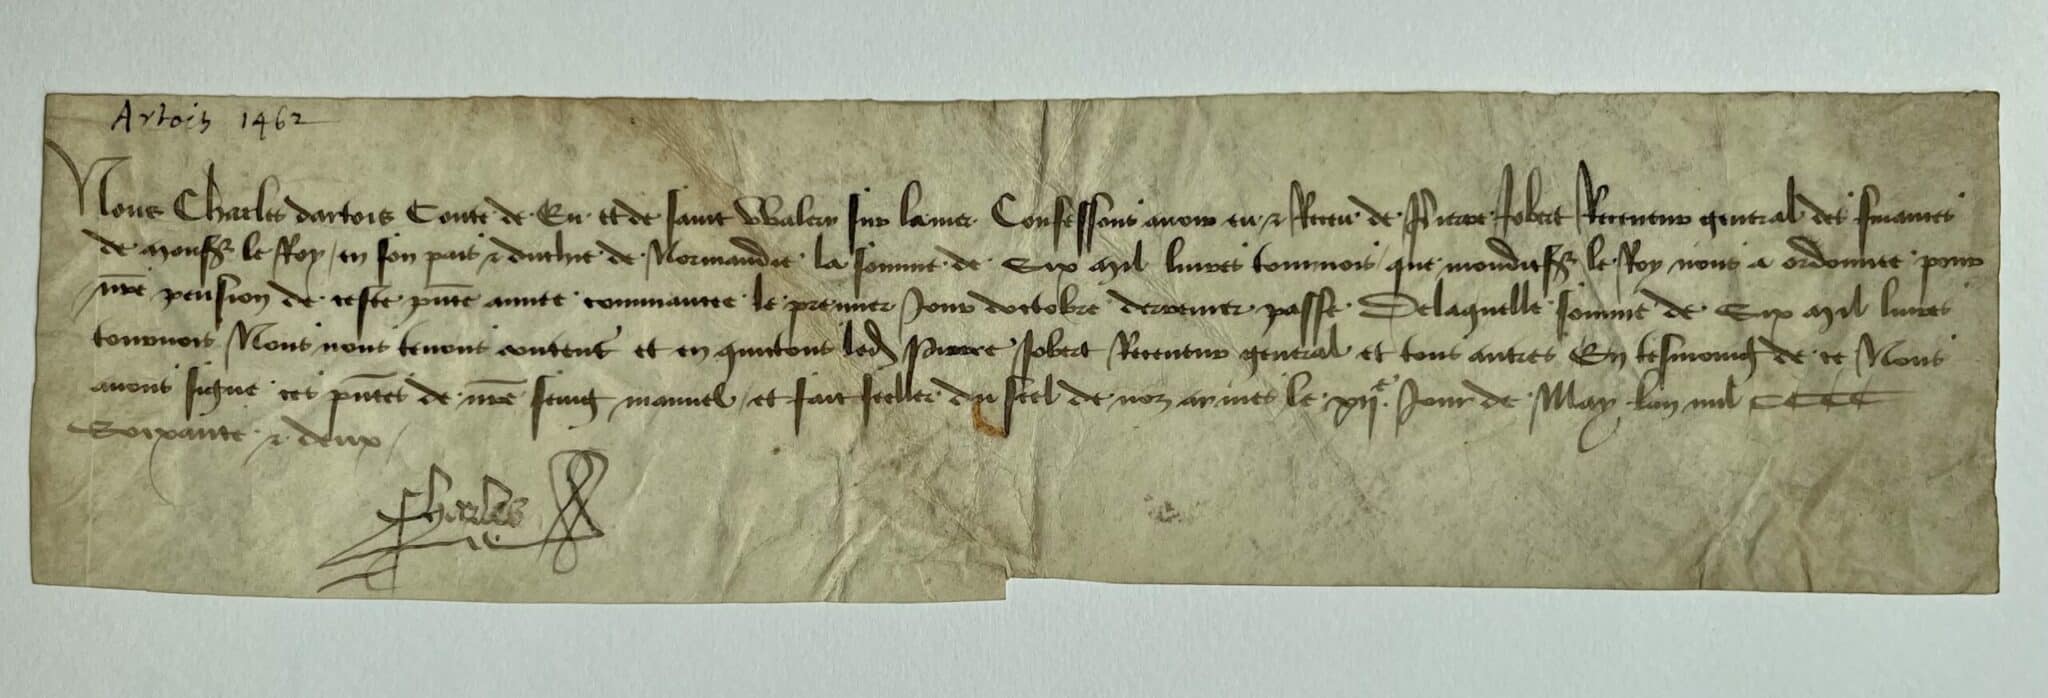 Artois 1462
Nous Charles dartois Conte de Eu et de saint Walery sur lamer Confessons avoir eu & Receu de Pierre Jobert Receveur general des finances
de monsr le Roy / en son pais & duchie de Normandie la somme de Six mil livres tournois que mondit sr le Roy nous a ordonnee pour
nre pension de ceste pnte annee commancee le premier Jour doctobre derrenier passe Delaquelle somme de Six mil livres
tournois Nous nous tenons content et en quictons led Pierre Jobert Receveur general et tous autres En tesmoing de ce Nous
avons signe ces pntes de nre seing manuel / et fait seeller du seel de noz armes le xije Jour de May lan mil CCCC
Soixante & deux /
Charles